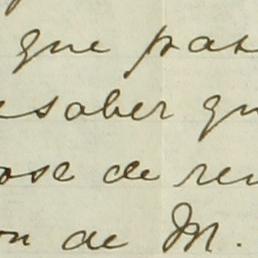 que pas
saber qu
ose de re
on de M.